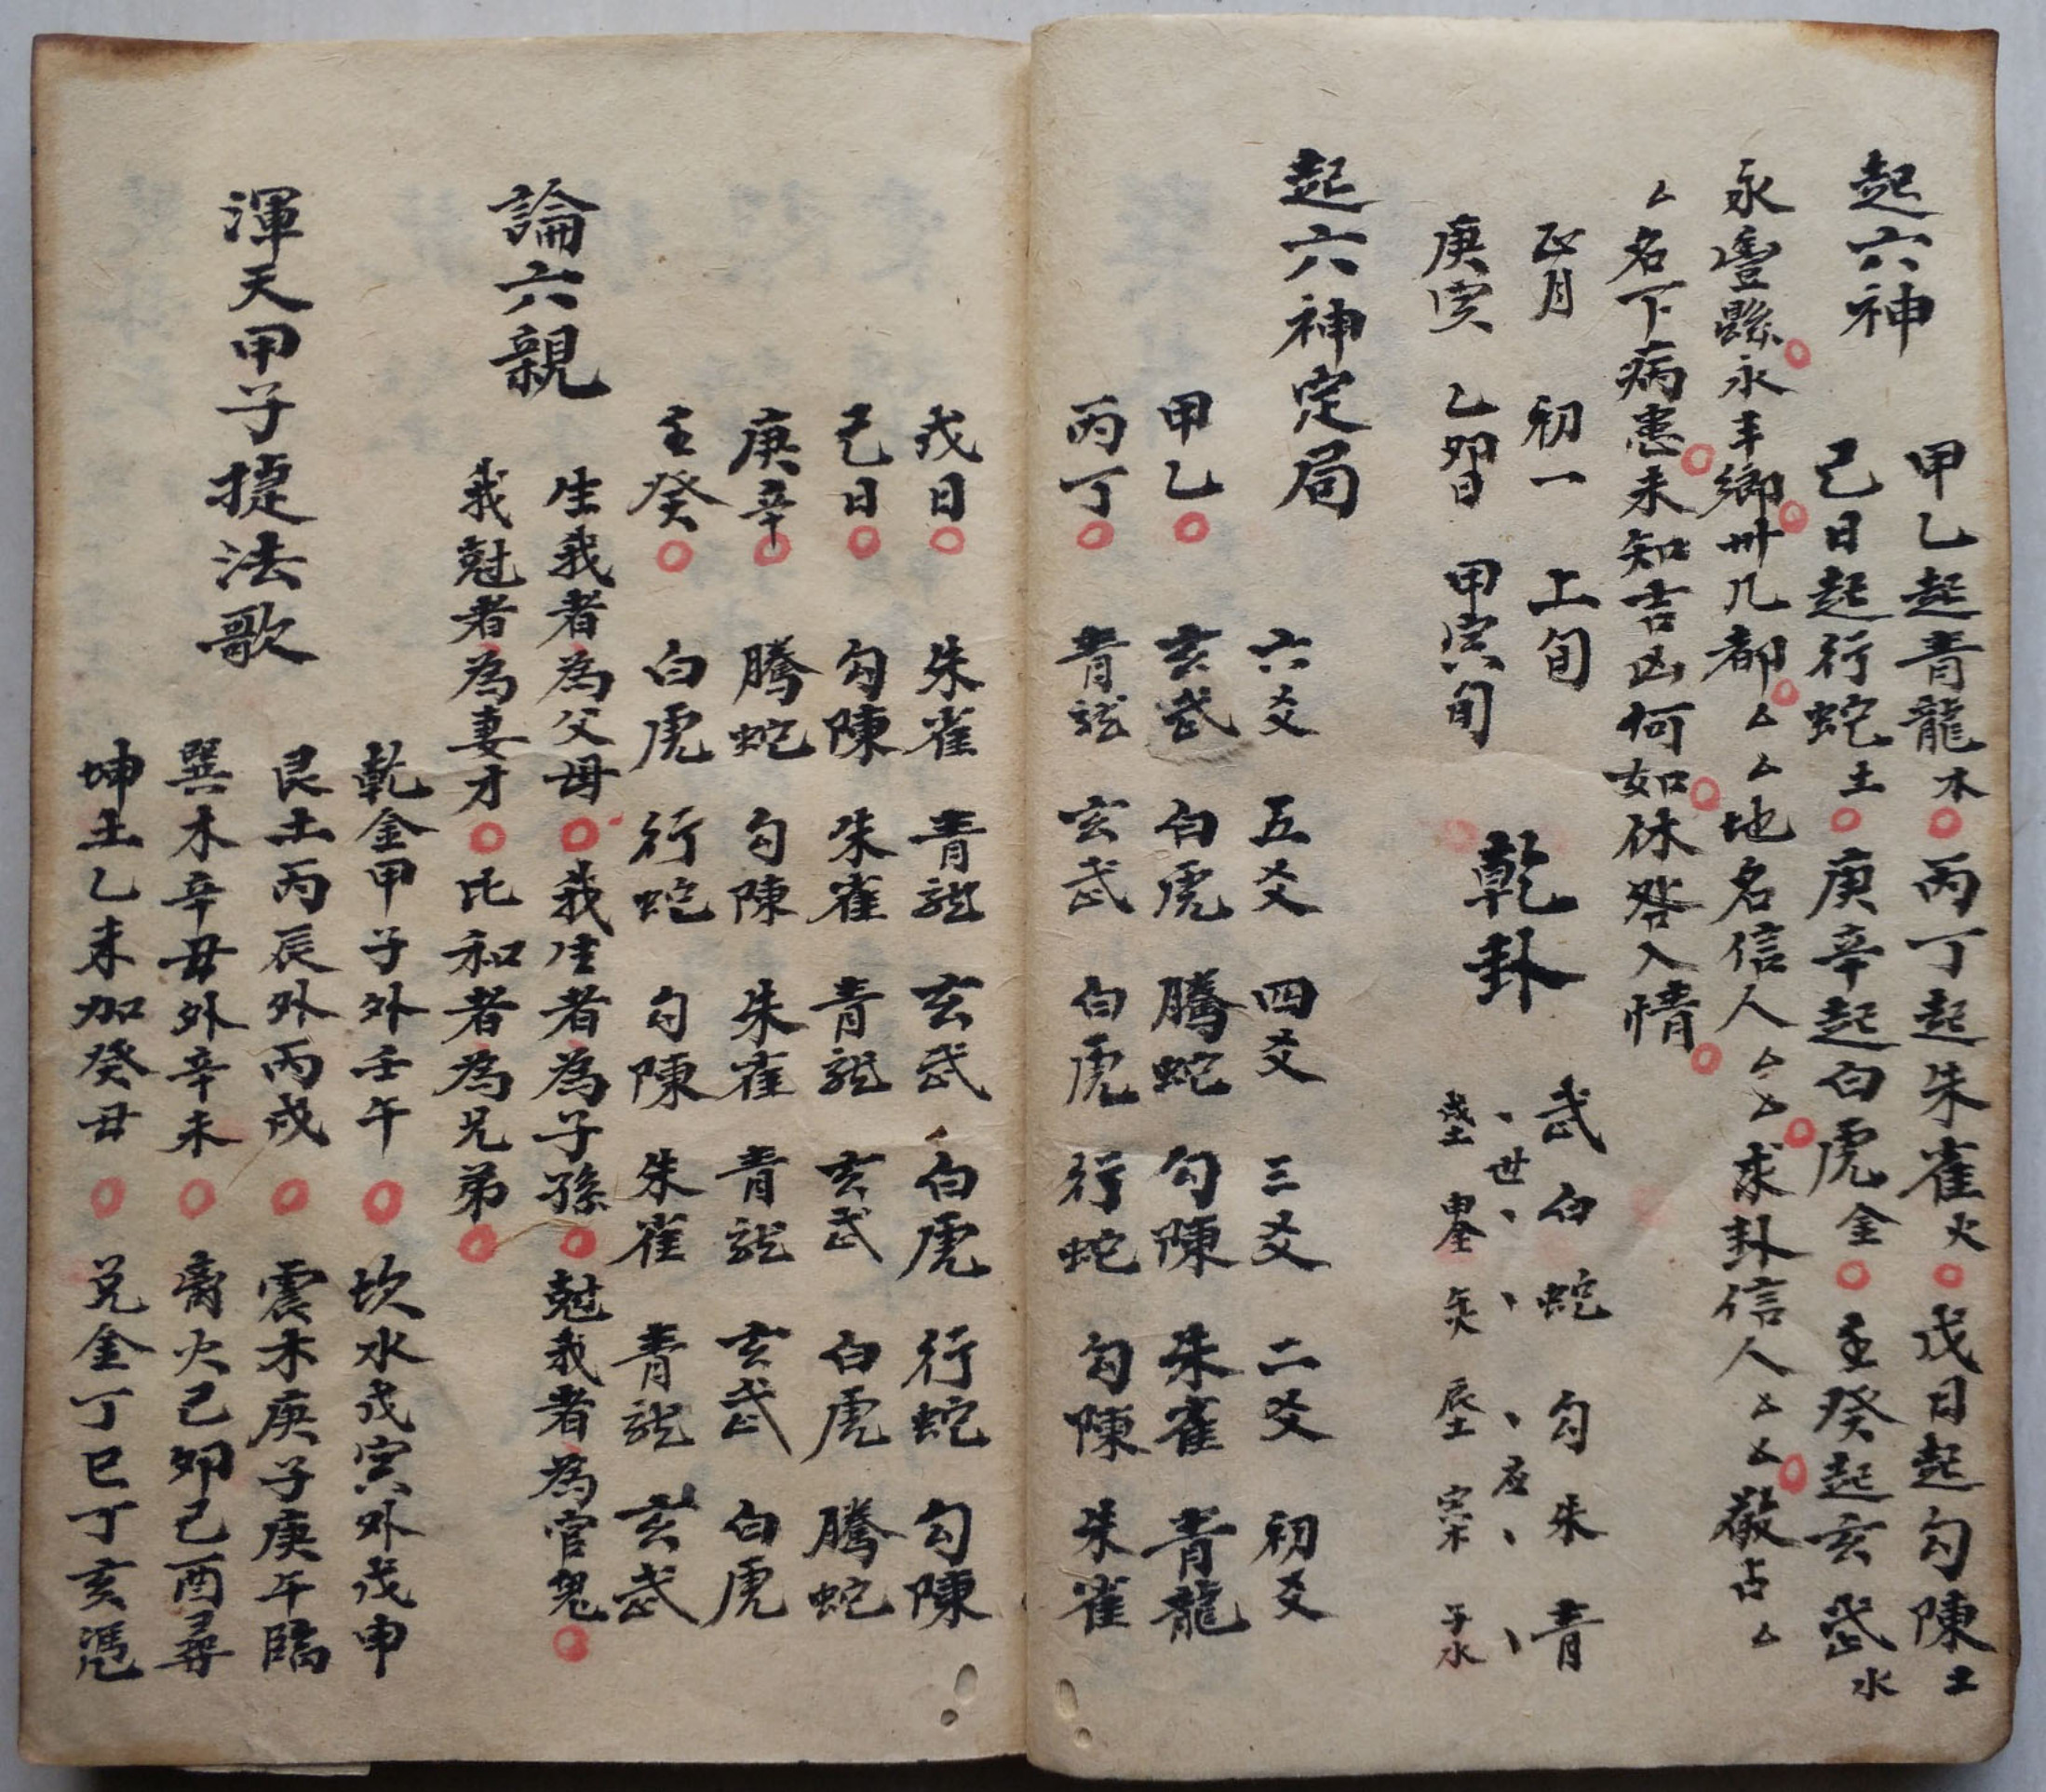 起六神
甲乙起青龍木○丙丁起朱雀火○戊日起勾陳土
己日起行蛇土○庚辛起白虎金○壬癸起玄武水
永豊縣永丰鄉卅几都厶厶地名信人厶厶求卦信人厶厶敬占厶
厶名下病患未知吉凶何如休咎入情
正月 初一 上旬
庚寅 乙卯日 甲寅旬
乾卦
武 白 蛇 勾 朱 青
、世、、、应、、
戌土 申金 午火 辰土 寅木 子水
起六神定局
六爻 五爻 四爻 三爻 二爻 初爻
甲乙○ 玄武 白虎 騰蛇 勾陳 朱雀 青龍
丙丁○ 青龙 玄武 白虎 行蛇 勾陳 朱雀
戊日○ 朱雀 青龙 玄武 白虎 行蛇 勾陳
己日○ 勾陳 朱雀 青龙 玄武 白虎 騰蛇
庚辛○ 騰蛇 勾陳 朱雀 青龙 玄武 白虎
壬癸○ 白虎 行蛇 勾陳 朱雀 青龙 玄武
論六親
生我者為父母○我生者為子孫○尅我者為官鬼○
我尅者為妻才○比和者為兄弟○
渾天甲子捷法歌
乾金甲子外壬午○坎水戊寅外戊申
艮土丙辰外丙戌○震木庚子庚午臨
巽木辛丑外辛未○离火己卯己酉尋
坤土乙未加癸丑○兑金丁巳丁亥凴